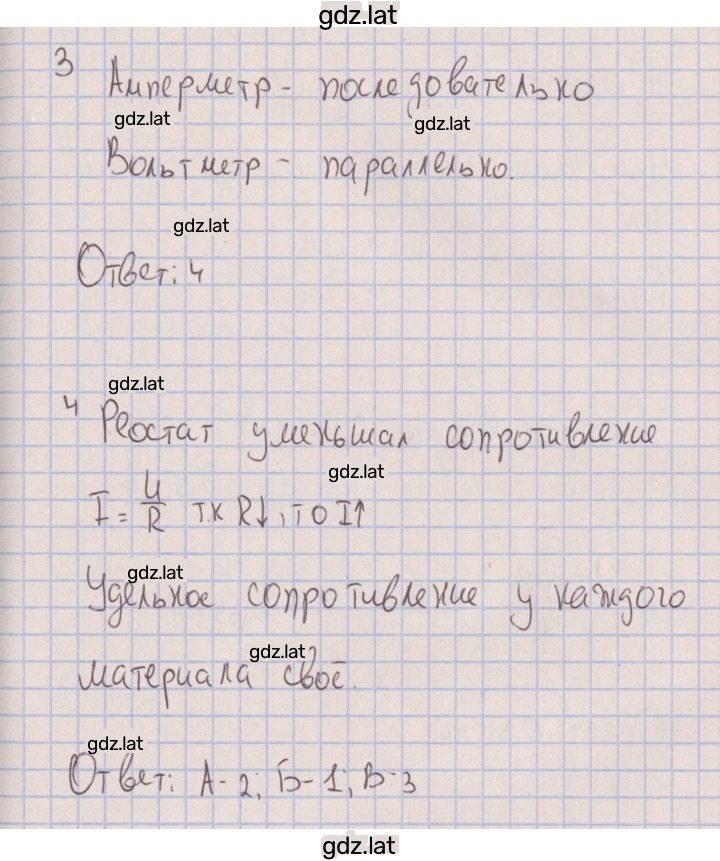 gdz.lat
3 Амперметр - последовательно
gdz.lat gdz.lat
Вольтметр - параллельно.
gdz.lat
Ответ: 4
gdz.lat
4 Реостат уменьшал сопротивление
gdz.lat
I = U/R т.к R↓, то I↑
gdz.lat
Удельное сопротивление у каждого
gdz.lat
материала своё.
gdz.lat
Ответ: А-2; Б-1; В-3
gdz.lat